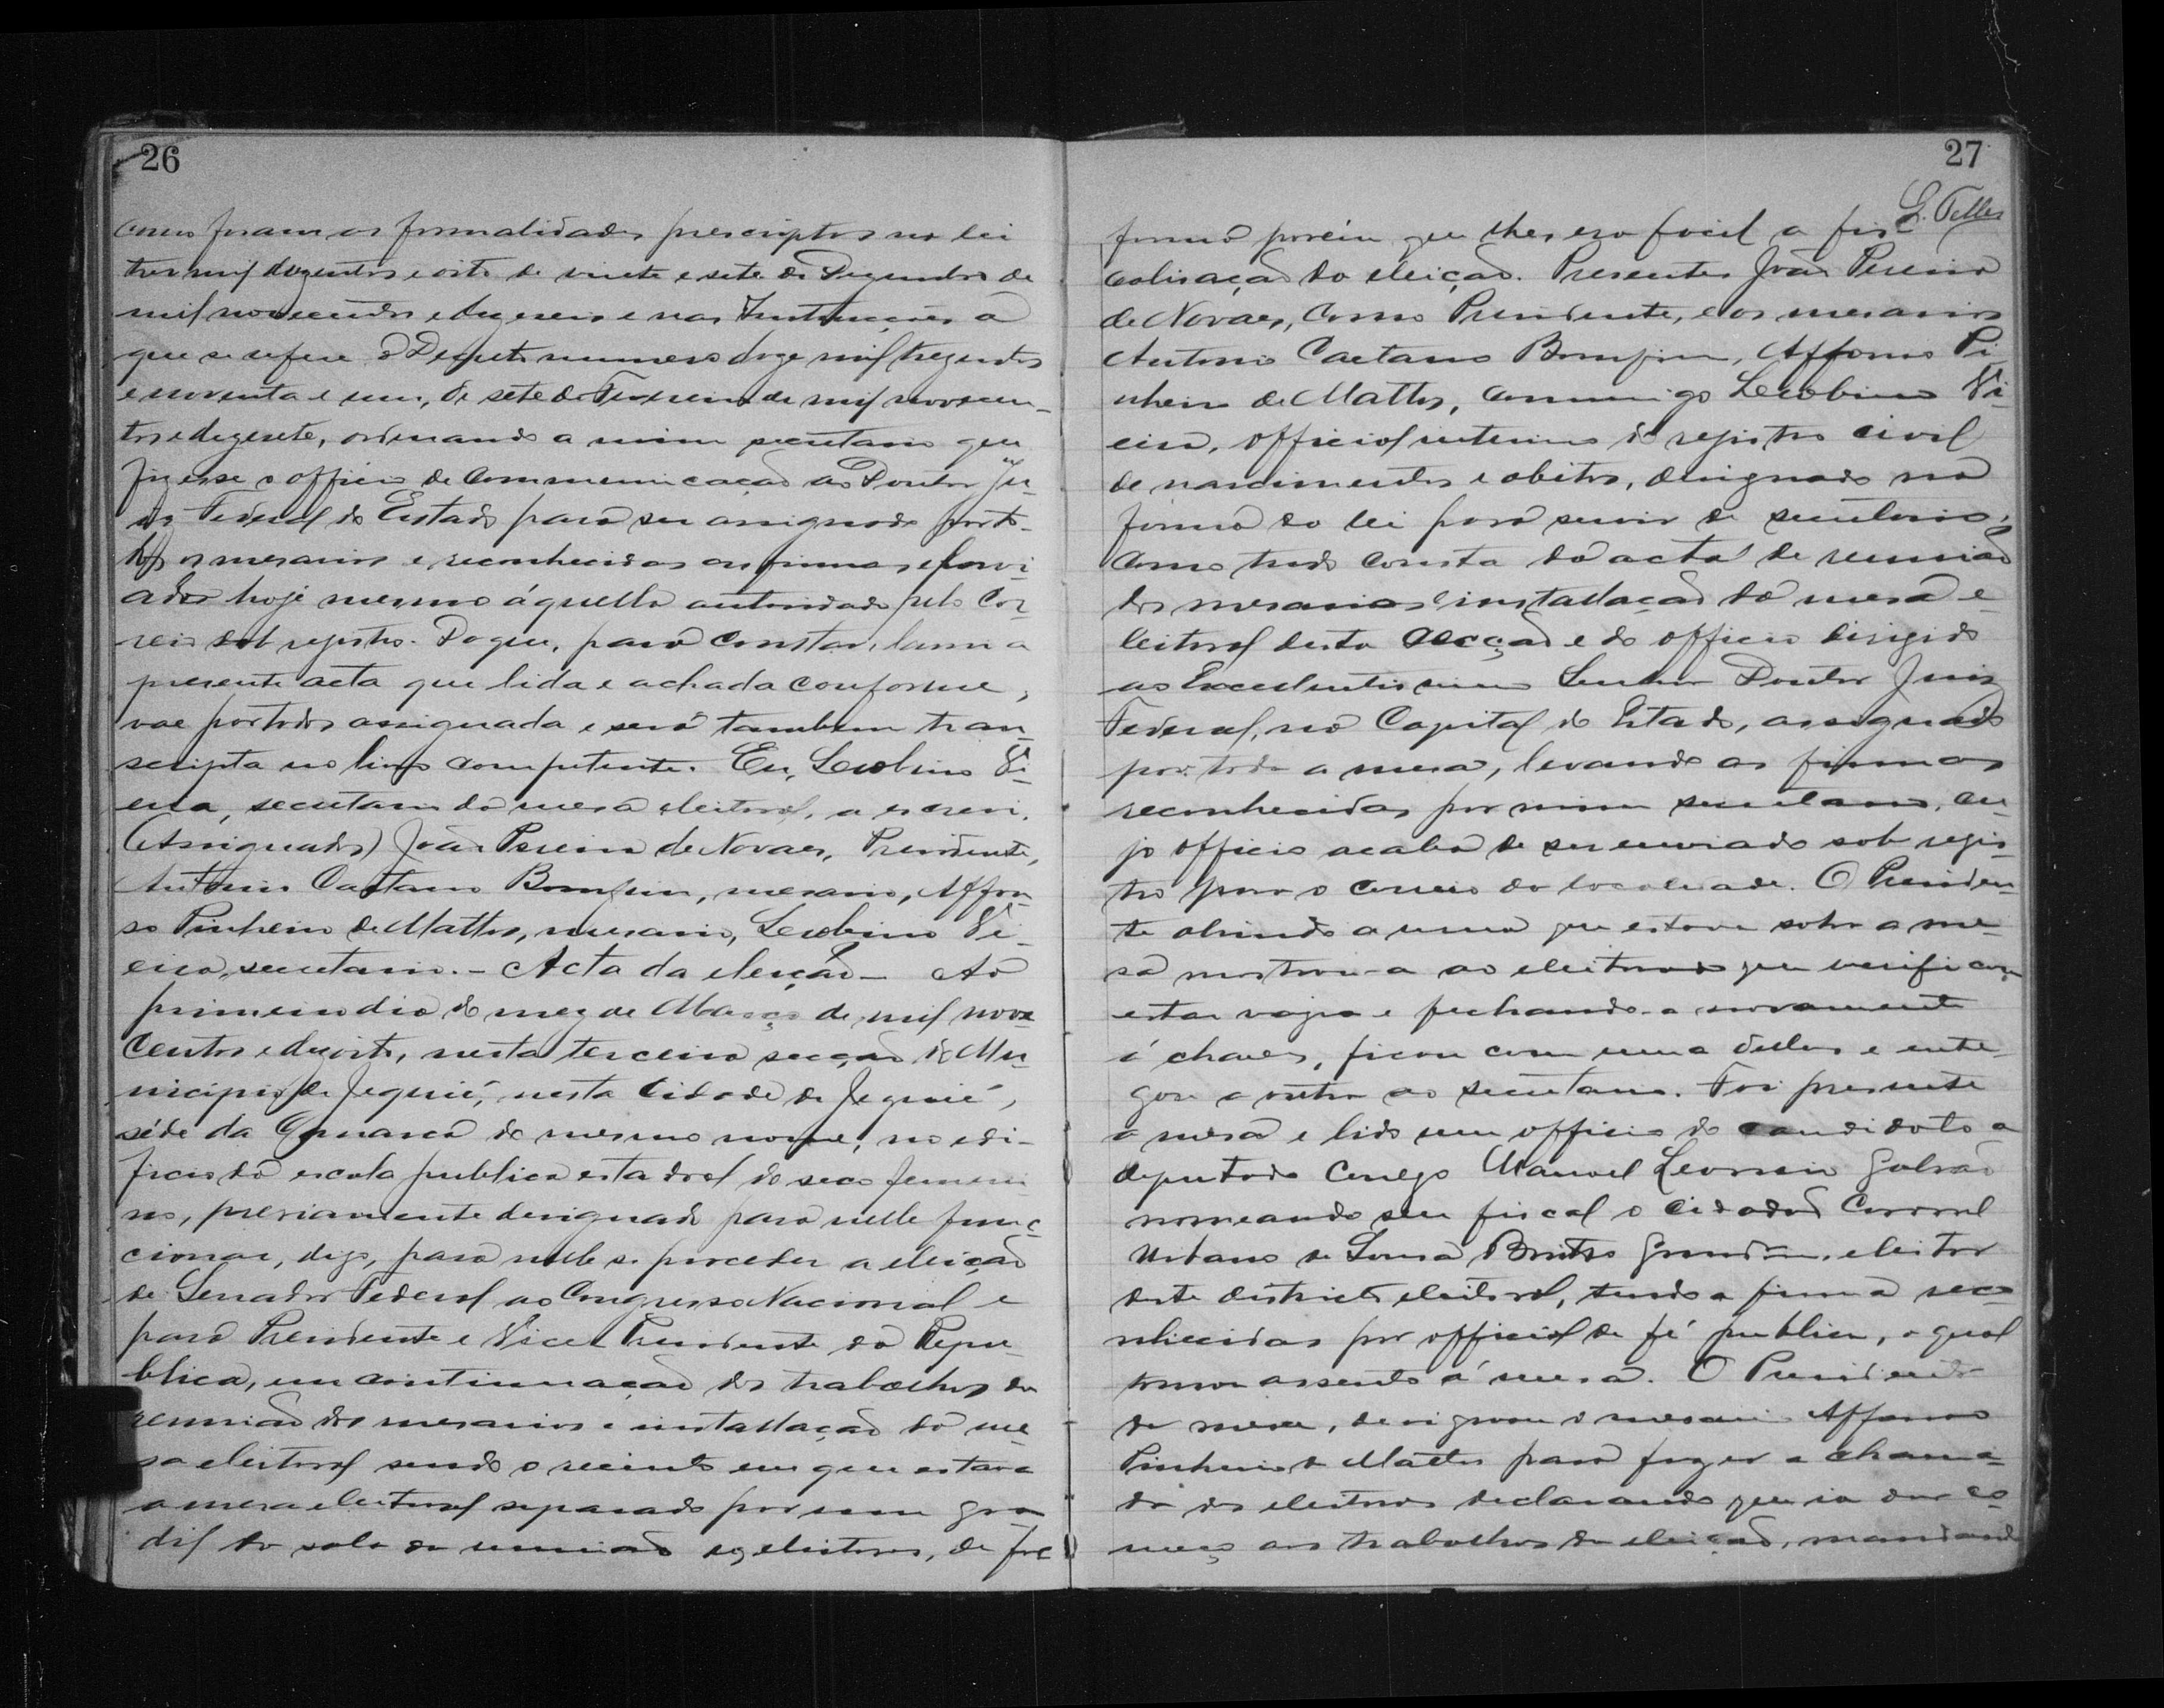 26
como foram as formalidades prescriptas na lei
tres mil duzentos e oito de vinte e sete de Dezembro de
mil novecentos e dezeseis e nas Instrucções a
que se refere o Decreto numero doze mil trezentos
e noventa e um, de sete de Fevereiro de mil novecen-
tos e dezesete, ordenando a mim secretario que
fizesse o officio de communicação ao Doutor Ju-
iz Federal do Estado para ser assignado por to-
dos os mesarios e reconhecidas as firmas e
hoje mesmo áquella autoridade pelo Cor-
reio sob registro. Do que, para constar, lavrei a
presente acta que lida e achada conforme,
vae por todos assignada e será tambem tran-
scripta no livro competente. Eu, Leobino Vi-
eira, secretario da mesa eleitoral, a escrevi.
(Assignados) João Pereira de Novaes, Presidente,
Antonio Caetano Bomfim, mesario, Affon-
so Pinheiro de Mattos, mesario, Leobino Vi-
eira, secretario. - Acta da eleição - Ao
primeiro dia do mez de Março de mil nove
centos e dezoito, nesta terceira secção do Mu-
nicipio de Jequié, nesta Cidade de Jequié,
séde da Comarca do mesmo nome, no edi-
ficio da escola publica estadoal do sexo femini-
no, previamente designado para nelle func-
cionar, digo, para nelle se proceder a eleição
de Senador Federal ao Congresso Nacional e
para Presidente e Vice Presidente da Repu-
blica, em continuação dos trabalhos da
reunião dos mesarios e installação da me-
sa eleitoral sendo o recinto em que estava
a mesa eleitoral separado por um gra-
dil da sala da reunião dos eleitores, de
27
L. Telles
forma porém que lhes era facil a fis-
calisação da eleição. Presentes João Pereira
de Novaes, como Presidente, e os mesarios
Antonio Caetano Bomfim, Affonso Pi-
nheiro de Mattos, commigo Leobino Vi-
eira, official interino do registro civil
de nascimentos e obitos, designado na
forma da lei para servir de secretario;
como tudo consta da acta de reunião
dos mesarios e installação da mesa e-
leitoral desta secção e do officio dirigido
ao Excellentissimo Senhor Doutor Juiz
Federal, na Capital do Estado, assignado
por toda a mesa, levando as firmas
reconhecidas por mim secretario, cu-
jo officio acaba de ser enviado sob regis-
tro para o correio da localidade. O Presiden-
te abrindo a urna que estava sobre a me-
sa mostrou-a ao eleitorado que verificou
estar vazia e fechando-a novamente
á chaves, ficou com uma dellas e entre-
gou a outra ao secretario. Foi presente
a mesa e lido um officio do candidato a
deputado Conego Manoel Leoncio Galvão
nomeando seu fiscal o cidadão Coronel
Urbano de Souza Britto Gondim, eleitor
deste districto eleitoral, tendo a firma reco-
nhecidas por official de fé publica, o qual
tomou assento á mesa. O Presidente
da mesa, designou o mesario Affonso
Pinheiro de Mattos para fazer a chama-
da dos eleitores declarando que ia dar co-
meço aos trabalhos da eleição, mandando